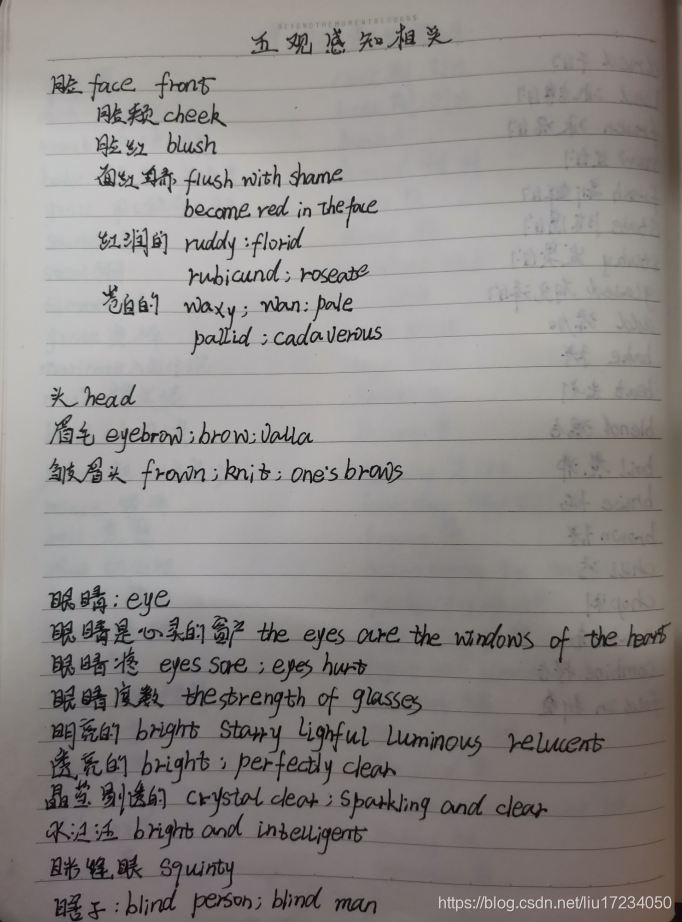 五观感知相关
脸 face front
脸颊 cheek
脸红 blush
面红耳赤 flush with shame
become red in the face
红润的 ruddy : florid
rubicund ; roseate
苍白的 waxy ; wan : pale
pallid ; cadaverous
头 head
眉毛 eyebrow ; brow ; valla
皱眉头 frown ; knit ; one's brows
眼睛 : eye
眼睛是心灵的窗户 the eyes are the windows of the heart
眼睛疼 eyes sore ; eyes hurt
眼睛度数 the strength of glasses
明亮的 bright starry lighful luminous relucent
透亮的 bright ; perfectly clear
晶莹剔透的 crystal clear ; sparkling and clear
水汪汪 bright and intelligent
眯缝眼 squinty
瞎子 : blind person ; blind man
https://blog.csdn.net/liu17234050